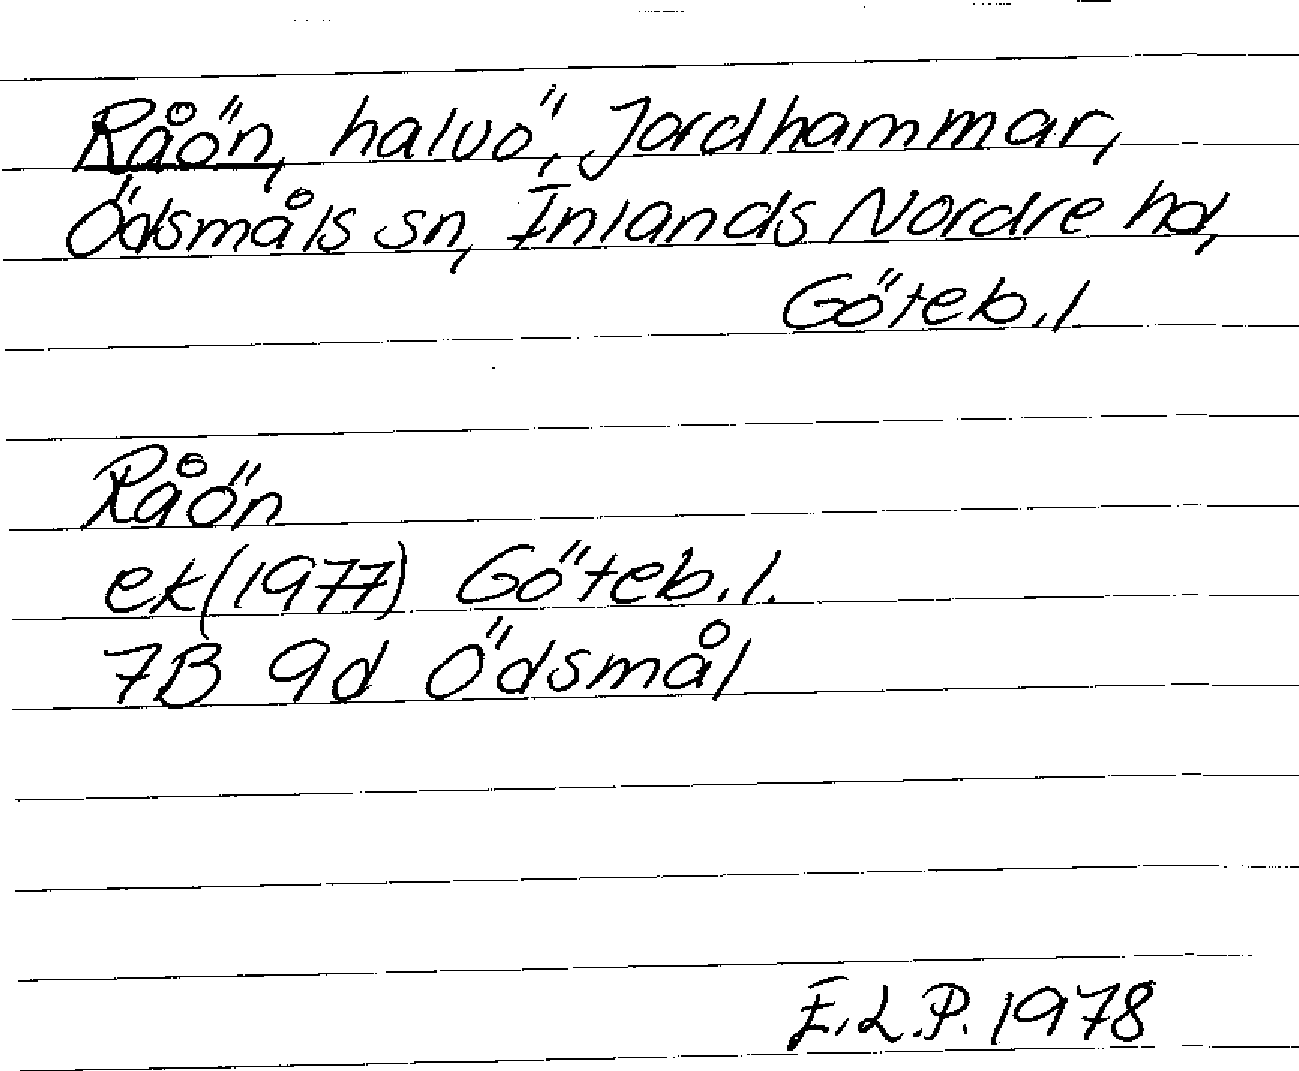 Råön, halvö, Jordhammar,
Ödsmåls sn, Inlands Nordre hd,
Göteb.l
Råön
ek(1977) Göteb.l.
7B 9d Ödsmål
E.L.P. 1978